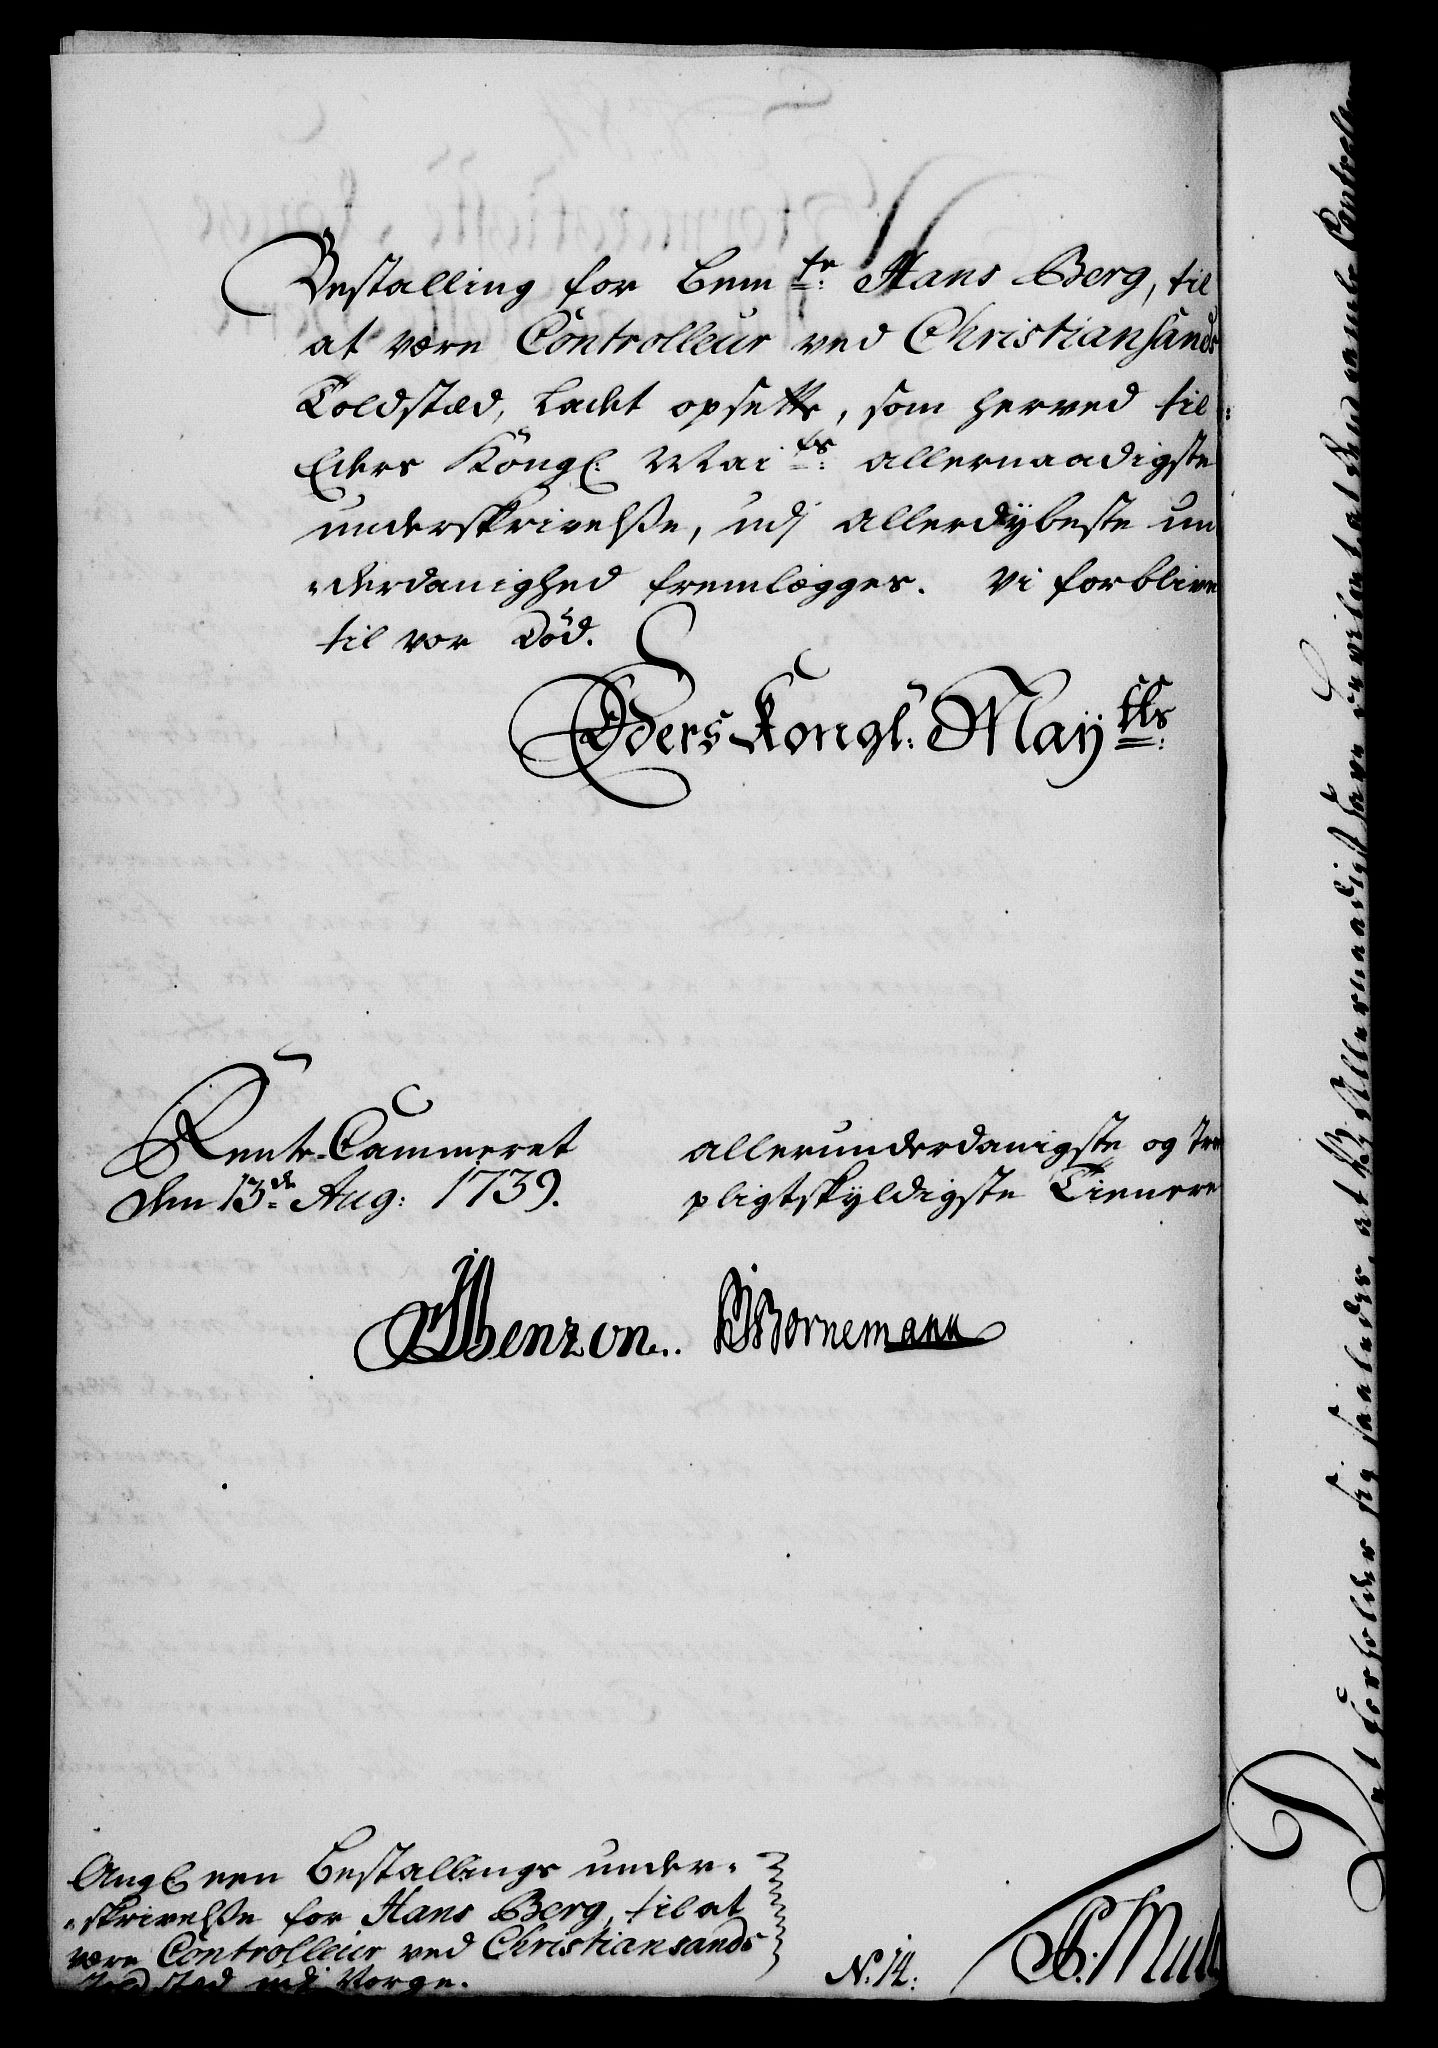 Bestalling for bem.te Hans Berg, til
at være Controlleur ved Christiansands
Toldstæd, ladet opsette, som herved til
Eders Köngl: Mai.ts allernaadigste
underskrivelße, udj allerdÿbeste un
-derdanighed fremlægges. Vi forblive
til vor Död.
Eders Kongl: Maÿ.tts
Rente-Cammeret
den 13.de Aug: 1739.
allerunderdanigste og tro
pligtskÿldigste Tienere
Benzon
Bornemann
Ang: een Bestallings under-
-skrivelße for Hans Berg, til at
være Controlleur ved Christiansands
Toldstæd udj Norge.
N. 14:
Det forholder sig saaledes, at
Allernaadigst have